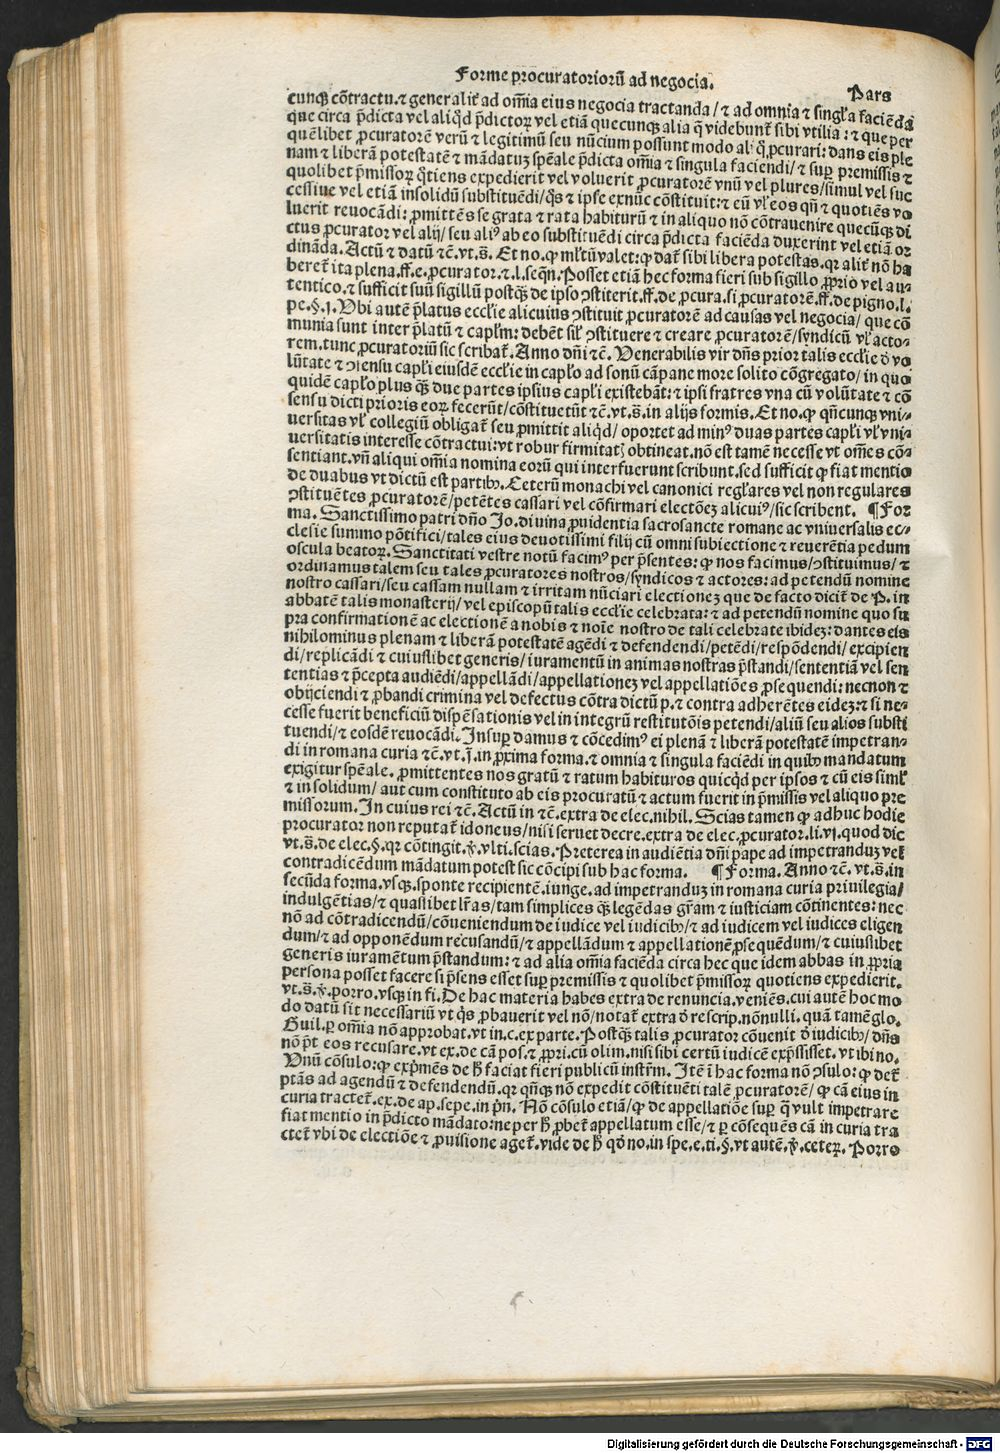 Forme procuratoriorū ad negocia.
Pars
cunqꝫ cōtractu. ⁊ generalit̄ ad om̄ia eius negocia tractanda / ⁊ ad omnia ⁊ singl̄a faciēda
que circa p̄dicta vel aliqđ p̄dictoꝝ vel etiā quecunqꝫ alia q̄ videbunt̄ sibi vtilia : ⁊ que per
quēlibet ꝓcuratorē verū ⁊ legitimū seu nūcium possunt modo ali q̄ ꝓcurari : dans eis ple
nam ⁊ liberā potestatē ⁊ mādatuꝫ spēale p̄dicta om̄ia ⁊ singula faciendi / ⁊ suꝑ premissis ⁊
quolibet p̄missoꝝ q̄tiens expedierit vel voluerit ꝓcuratorē vnū vel plures / simul vel suc
cessiue vel etiā insolidū substituēdi / q̄s ⁊ ipse exnūc cōstituit : ⁊ eū vl̄ eos qn̄ ⁊ quotiēs vo
luerit reuocādi : ꝓmittēs se grata ⁊ rata habiturū ⁊ in aliquo nō cōtrauenire quecūqꝫ di
ctus ꝓcurator vel alij / seu aliꝰ ab eo substituēdi circa p̄dicta faciēda duxerint vel etiā or
dināda. Actū ⁊ datū ⁊c̄. vt. s̄. Et no. ꝙ ml̄tū valet : ꝙ dat̄ sibi libera potestas. qꝛ alit̄ nō ha
beret̄ ita plena. ff. e. ꝓcurator. ⁊. l. seqn̄. Posset etiā hec forma fieri sub sigillo ꝓprio vel au-
tentico. ⁊ sufficit suū sigillū postqꝫ de ipso ꝯstiterit. ff. de ꝓcura. si ꝓcuratorē. ff. de pigno. l.
pe. §. 1. Vbi autē p̄latus eccl̄ie alicuius ꝯstituit ꝓcuratorē ad causas vel negocia / que cō
munia sunt inter p̄latū ⁊ capl̄m : debēt sil̄ ꝯstituere ⁊ creare ꝓcuratorē / syndicū vl̄ acto-
rem. tunc ꝓcuratoriū sic scribat̄. Anno dn̄i ⁊c̄. Venerabilis vir dn̄s prior talis eccl̄ie đ vo
lūtate ⁊ ꝯsensu capl̄i eiusdē eccl̄ie in capl̄o ad sonū cāpane more solito cōgregato / in quo
quidē capl̄o plus qꝫ due partes ipsius capl̄i existebāt : ⁊ ipsi fratres vna cū volūtate ⁊ cō
sensu dicti prioris eoꝝ fecerūt / cōstituetūt ⁊c̄. vt. s̄. in alijs formis. Et no. ꝙ qn̄cunqꝫ vni-
uersitas vl̄ collegiū obligat̄ seu ꝓmittit aliqđ / oportet ad minꝰ duas partes capl̄i vl̄ vni-
uersitatis interesse cōtractui : vt robur firmitatꝭ obtineat. nō est tamē necesse vt om̄es cō-
sentiant. vn̄ aliqui om̄ia nomina eorū qui interfuerunt scribunt. sed sufficit ꝙ fiat mentio
de duabus vt dictū est partibꝫ. Ceterū monachi vel canonici regl̄ares vel non regulares
ꝯstituētes ꝓcuratorē / petētes cassari vel cōfirmari electōeꝫ alicuiꝰ / sic scribent. ¶For
ma. Sanctissimo patri dn̄o Jo. diuina ꝓuidentia sacrosancte romane ac vniuersalis ec-
clesie summo pōtifici / tales eius deuotissimi filij cū omni subiectione ⁊ reuerētia pedum
oscula beatoꝝ. Sanctitati vestre notū facimꝰ per p̄sentes : ꝙ nos facimus / ꝯstituimus / ⁊
ordinamus talem seu tales ꝓcuratores nostros / syndicos ⁊ actores : ad petendū nomine
nostro cassari / seu cassam nullam ⁊ irritam nūciari electioneꝫ que de facto dicit̄ de P. in
abbatē talis monasterij / vel episcopū talis eccl̄ie celebrata : ⁊ ad petendū nomine quo su
pra confirmationē ac electionē a nobis ⁊ noīe nostro de tali celebrate ibideꝫ : dantes eis
nihilominus plenam ⁊ liberā potestatē agēdi ⁊ defendendi / petēdi / respōdendi / excipien
di / replicādi ⁊ cuiuslibet generis / iuramentū in animas nostras p̄standi / sententiā vel sen
tentias ⁊ p̄cepta audiēdi / appellādi / appellationeꝫ vel appellatiōes ꝓsequendi : necnon ⁊
obijciendi ⁊ ꝓbandi crimina vel defectus cōtra dictū p. ⁊ contra adherētes eideꝫ : ⁊ si ne-
cesse fuerit beneficiū dispēsationis vel in integrū restitutōis petendi / aliū seu alios substi
tuendi / ⁊ eosdē reuocādi. Insuꝑ damus ⁊ cōcedimꝰ ei plenā ⁊ liberā potestatē impetran-
di in romana curia ⁊c̄. vt. j̄. in ꝓxima forma. ⁊ omnia ⁊ singula faciēdi in quibꝫ mandatum
exigitur spēale. ꝓmittentes nos gratū ⁊ ratum habituros quicqđ per ipsos ⁊ cū eis siml̄
⁊ in solidum / aut cum constituto ab eis procuratū ⁊ actum fuerit in p̄missis vel aliquo pre
missorum. In cuius rei ⁊c̄. Actū in ⁊c̄. extra de elec. nihil. Scias tamen ꝙ adhuc hodie
procurator non reputat̄ idoneus / nisi seruet decre. extra de elec. ꝓcurator. li. vj. quod dic
vt. s̄. de elec. §. qꝛ cōtingit. ꝟ. vlti. scias. Preterea in audiētia dn̄i pape ad impetranduꝫ vel
contradicēdum mādatum potest sic cōcipi sub hac forma. ¶Forma. Anno ⁊c̄. vt. s̄. in
secūda forma. vsqꝫ. sponte recipientē. iunge. ad impetranduꝫ in romana curia priuilegia /
indulgētias / ⁊ quaslibet lr̄as / tam simplices qꝫ legēdas gr̄am ⁊ iusticiam cōtinentes : nec
nō ad cōtradicendū / cōueniendum de iudice vel iudicibꝫ / ⁊ ad iudicem vel iudices eligen
dum / ⁊ ad opponēdum recusandū / ⁊ appellādum ⁊ appellationē ꝓsequēdum / ⁊ cuiuslibet
generis iuramētum p̄standum : ⁊ ad alia om̄ia faciēda circa hec que idem abbas in ꝓpria
persona posset facere si p̄sens esset suꝑ premissis ⁊ quolibet p̄missoꝝ quotiens expedierit.
vt. s̄. ꝟ. porro. vsqꝫ in fi. De hac materia habes extra de renuncia. veniēs. cui autē hoc mo
do datū sit necessariū vt q̄s ꝓbauerit vel nō / notat̄ extra đ rescrip. nōnulli. quā tamē glo.
Guil. ꝑ om̄ia nō approbat. vt in. c. ex parte. Postqꝫ talis ꝓcurator cōuenit đ iudicibꝫ / dn̄s
nō p̄t eos recusare. vt ex. de cā pos. ⁊ ꝓpri. cū olim. nisi sibi certū iudicē exp̄ssisset. vt ibi no.
Vnū cōsulo : ꝙ exp̄mēs de ħ faciat fieri publicū instr̄m. Itē ī hac forma nō ꝯsulo : ꝙ det̄
ptās ad agendū ⁊ defendendū. qꝛ qn̄qꝫ nō expedit cōstituēti talē ꝓcuratorē / ꝙ cā eius in
curia tractet̄. ex. de ap. sepe. in pn̄. Nō cōsulo etiā / ꝙ de appellatiōe suꝑ q̄ vult impetrare
fiat mentio in p̄dicto mādato : ne per ħ ꝓbet̄ appellatum esse / ⁊ ꝑ cōsequēs cā in curia tra
ctet̄ vbi de electiōe ⁊ ꝓuisione aget̄. vide de ħ qđ no. in spe. e. ti. §. vt autē. ꝟ. ceteꝝ. Porro
Digitalisierung gefördert durch die Deutsche Forschungsgemeinschaft - DFG